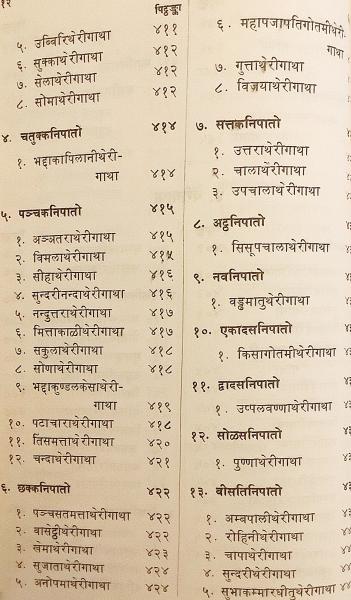 १२
पिट्ठङ्का
५. उब्बिरिथेरीगाथा ४११
६. सुक्काथेरीगाथा ४१२
७. सेलाथेरीगाथा ४१२
८. सोमाथेरीगाथा ४१२
४. चतुक्कनिपातो ४१४
१. भद्दाकापिलानीथेरी-
गाथा ४१४
५. पञ्चकनिपातो ४१५
१. अञ्ञतराथेरीगाथा ४१५
२. विमलाथेरीगाथा ४१५
३. सीहाथेरीगाथा ४१६
४. सुन्दरीनन्दाथेरीगाथा ४१६
५. नन्दुत्तराथेरीगाथा ४१७
६. मित्ताकाळीथेरीगाथा ४१७
७. सकुलाथेरीगाथा ४१८
८. सोणाथेरीगाथा ४१८
९. भद्दाकुण्डलकेसाथेरी-
गाथा ४१९
१०. पटाचाराथेरीगाथा ४१८
११. तिसमत्ताथेरीगाथा ४२०
१२. चन्दाथेरीगाथा ४२१
६. छक्कनिपातो ४२२
१. पञ्चसतमत्ताथेरीगाथा ४२२
२. वासेट्ठीथेरीगाथा ४२२
३. खेमाथेरीगाथा ४२३
४. सुजाताथेरीगाथा ४२४
५. अनोपमाथेरीगाथा ४२४
६. महापजापतिगोतमीथेरी-
गाथा
७. गुत्ताथेरीगाथा
८. विजयाथेरीगाथा
७. सत्तकनिपातो
१. उत्तराथेरीगाथा
२. चालाथेरीगाथा
३. उपचालाथेरीगाथा
८. अट्ठनिपातो
१. सिसूपचालाथेरीगाथा
९. नवनिपातो
१. वड्ढमातुथेरीगाथा
१०. एकादसनिपातो
१. किसागोतमीथेरीगाथा
११. द्वादसनिपातो
१. उप्पलवण्णाथेरीगाथा
१२. सोळसनिपातो
१. पुण्णाथेरीगाथा
१३. वीसतिनिपातो
१. अम्बपालीथेरीगाथा
२. रोहिनीथेरीगाथा
३. चापाथेरीगाथा
४. सुन्दरीथेरीगाथा
५. सुभाकम्मारधीतुथेरीगाथा